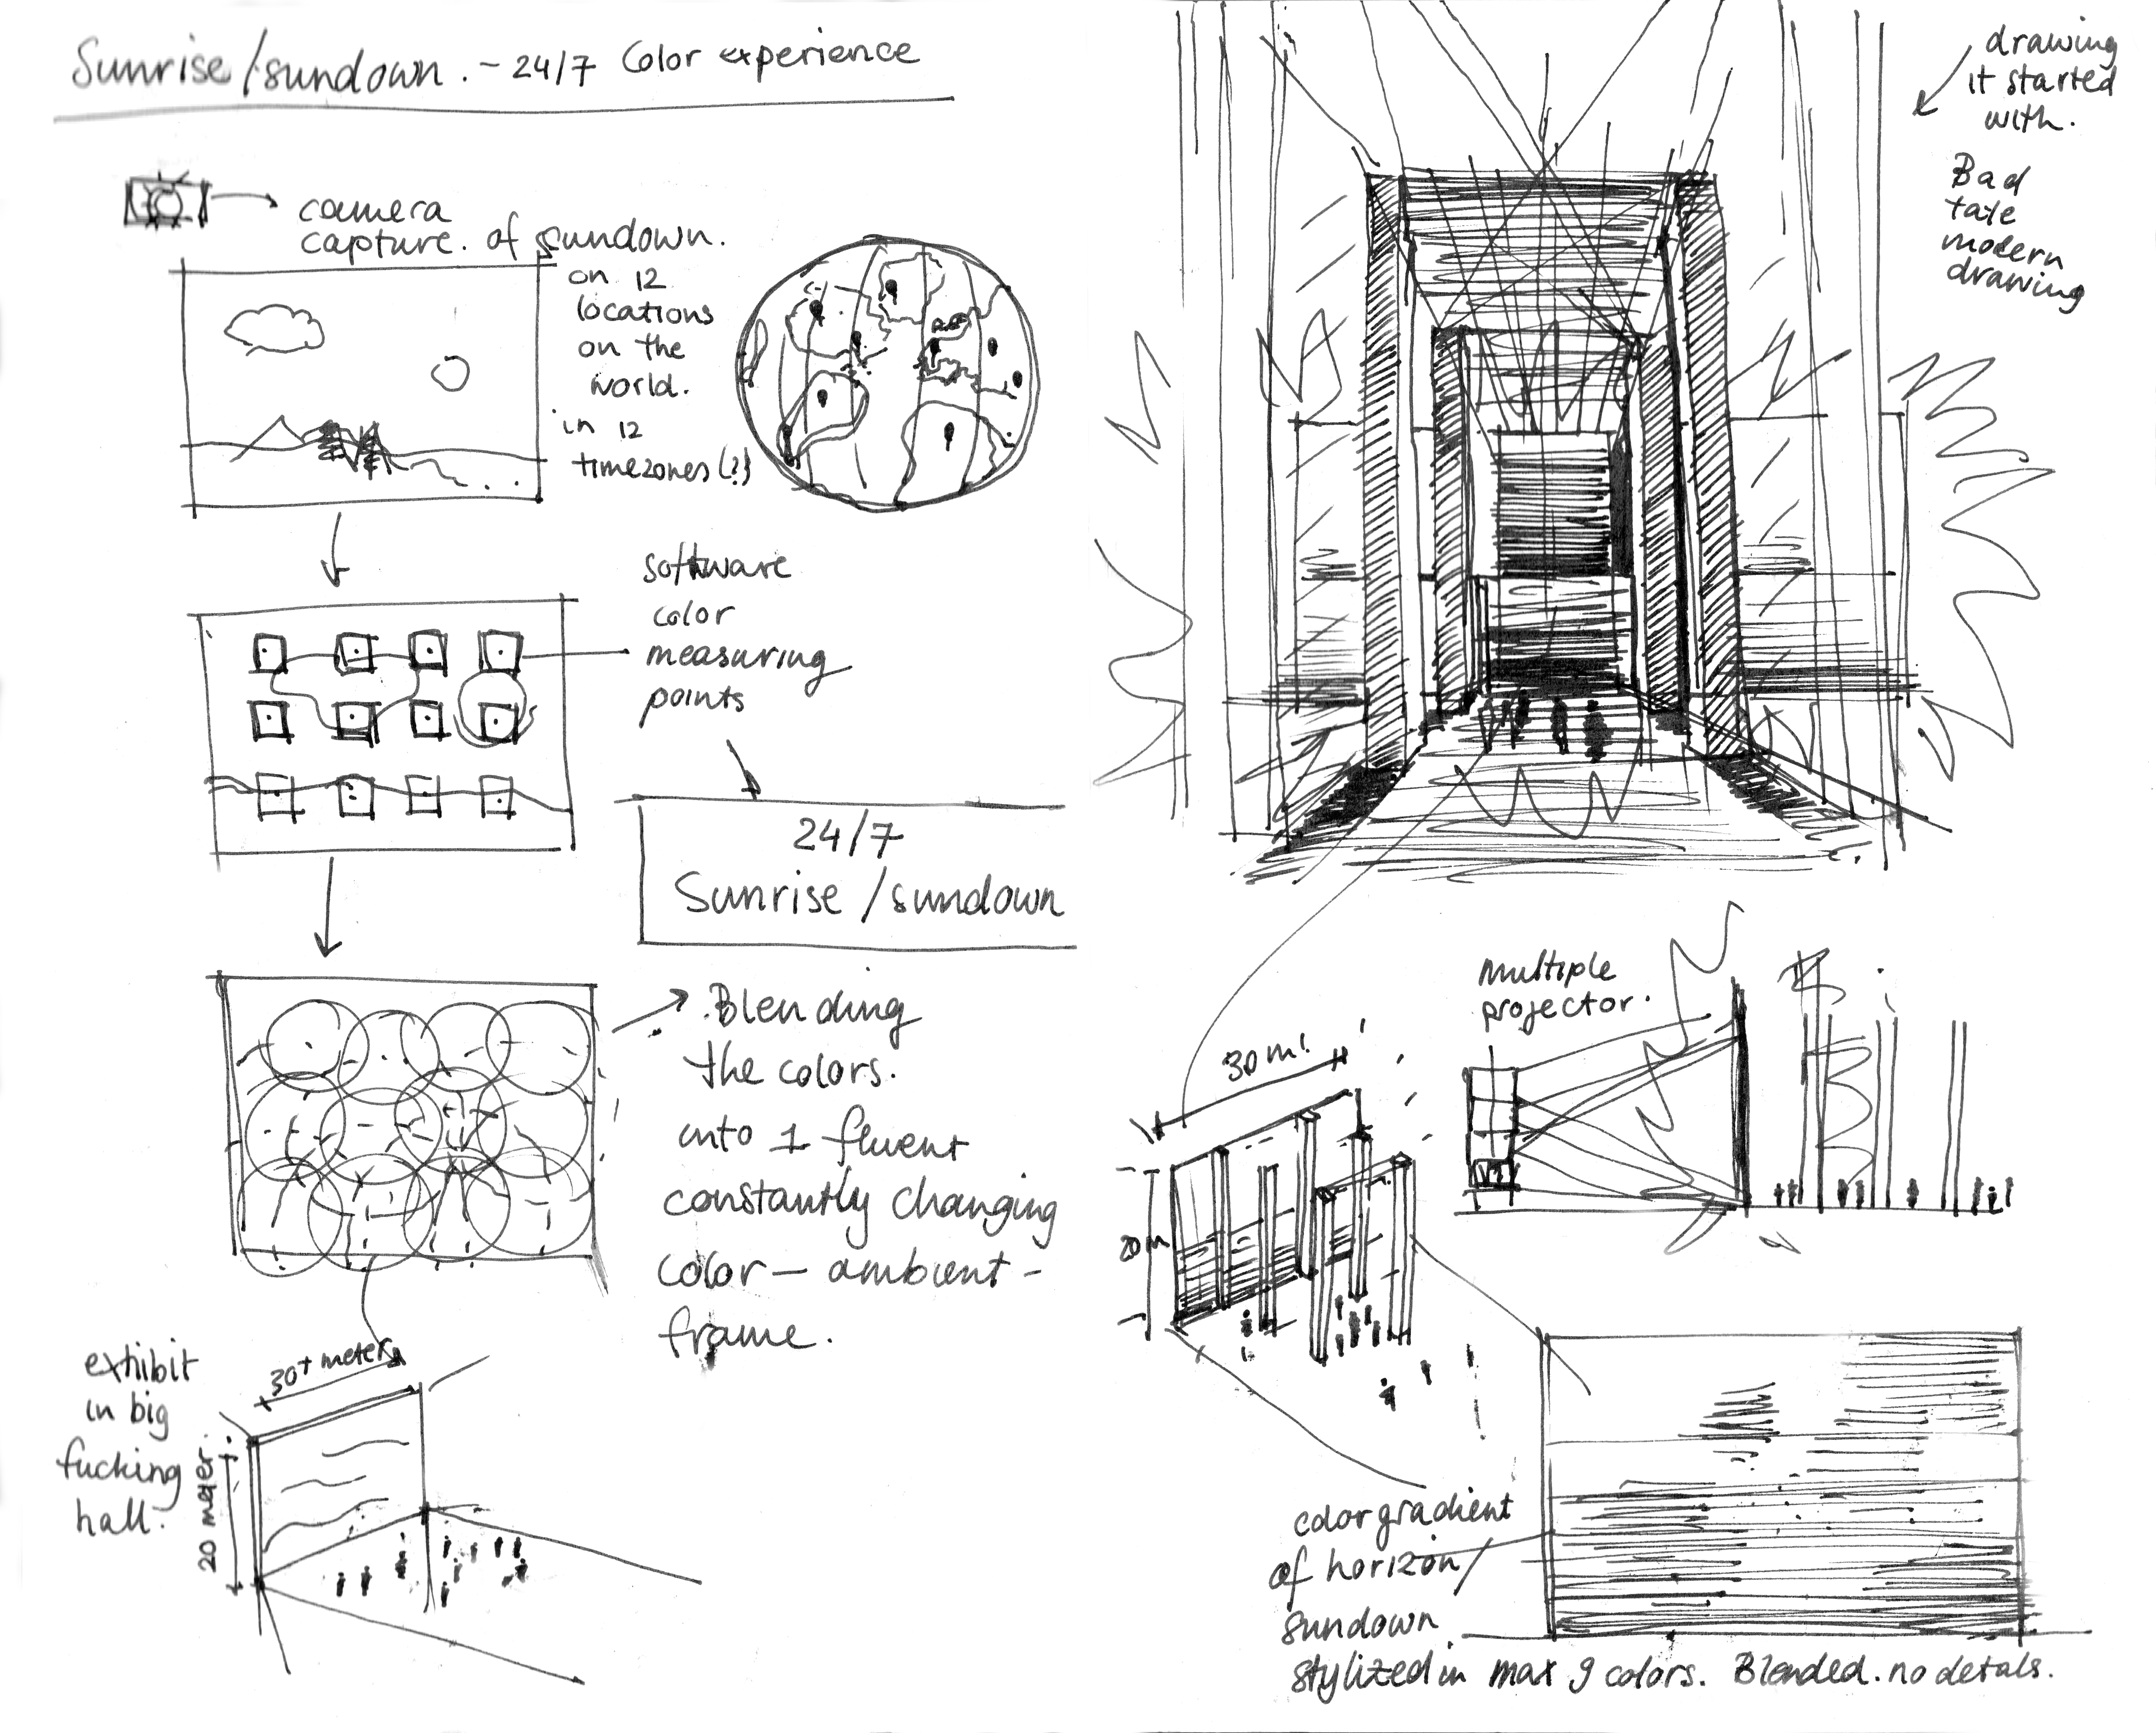 Sunrise/sundown. - 24/7 Color experience
camera
capture. of sundown.
on 12
locations
on the
world.
in 12
timezones(?)
software
color
measuring
points
24/7
Sunrise/sundown
Blending
the colors.
into 1 fluent
constantly changing
color - ambient -
frame.
exhibit
in big
fucking
hall.
30+ meter
20 meter.
drawing
it started
with.
Bad
tate
modern
drawing
multiple
projector.
30 m.
20 m
color gradient
of horizon/
sundown
stylized in max 9 colors. Blended. no detals.